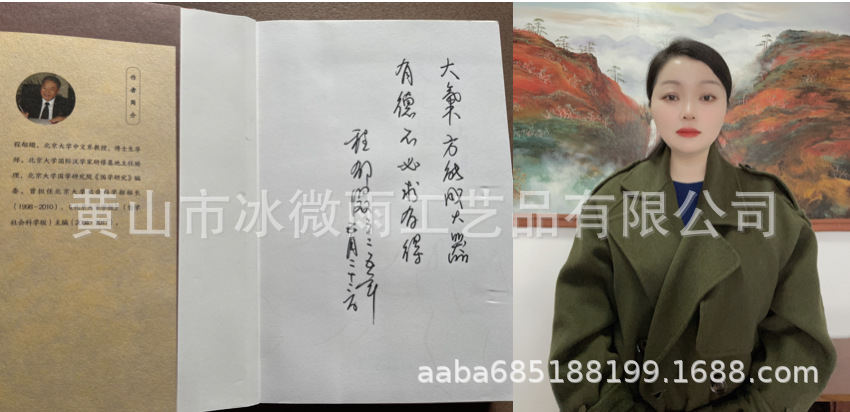 作者简介
程郁缀，北京大学中文系教授、博士生导
师，北京大学国际汉学家研修基地主任助
理，北京大学国学研究院《国学研究》编
委，曾担任北京大学
(1998-2010)、
社会科学版)主编
大氣方能成大器
有德不必求有得
程郁缀
黄山市冰微雨工艺品有限公司
aaba685188199.1688.com